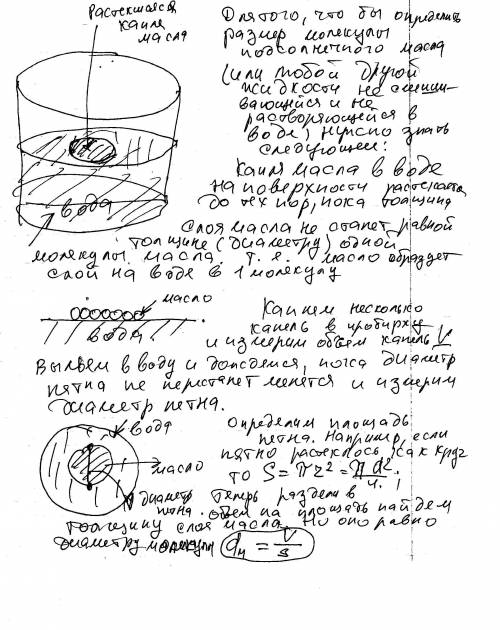 Растекшаяся
капля
масла
Для того, что бы определить
размер молекулы
подсолнечного масла
(или любой другой
жидкости не смеши-
вающейся и не
растворяющейся в
воде) нужно знать
следующеее:
Капля масла в воде
на поверхности растекается
до тех пор, пока толщина
слоя масла не станет равной
толщине (диаметру) одной
молекулы масла. Т. е. масло образует
слой на воде в 1 молекулу
вода
масло
вода
Капнем несколько
капель в пробирку
и измерим объем капель V
Выльем в воду и дождемся, пока диаметр
пятна не перестанет менятся и измерим
диаметр петна.
вода
масло
диаметр
петна.
Определим площадь
петна. Например, если
пятно растеклось, как круг
то S = πr² = πd²/4.
Теперь раздела в
объем на площадь найдем
толщину слоя масла. Но оно равно
диаметру молекулы
dм = V/s